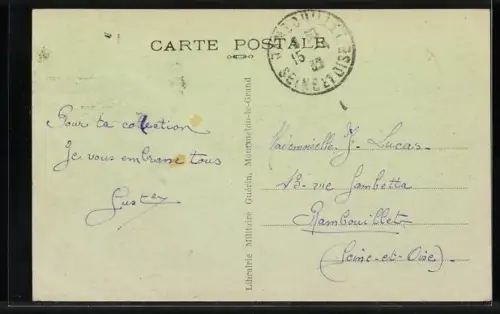 CARTE POSTALE
RAMBOUILLET
15
32
SEINE ET OISE
Pour ta collection
Je vous embrasse tous
Librairie Militaire Guérin, Mourmelon-le-Grand
Mademoiselle J. Lucas
13 rue Gambetta
Rambouillet
(Seine-et-Oise)